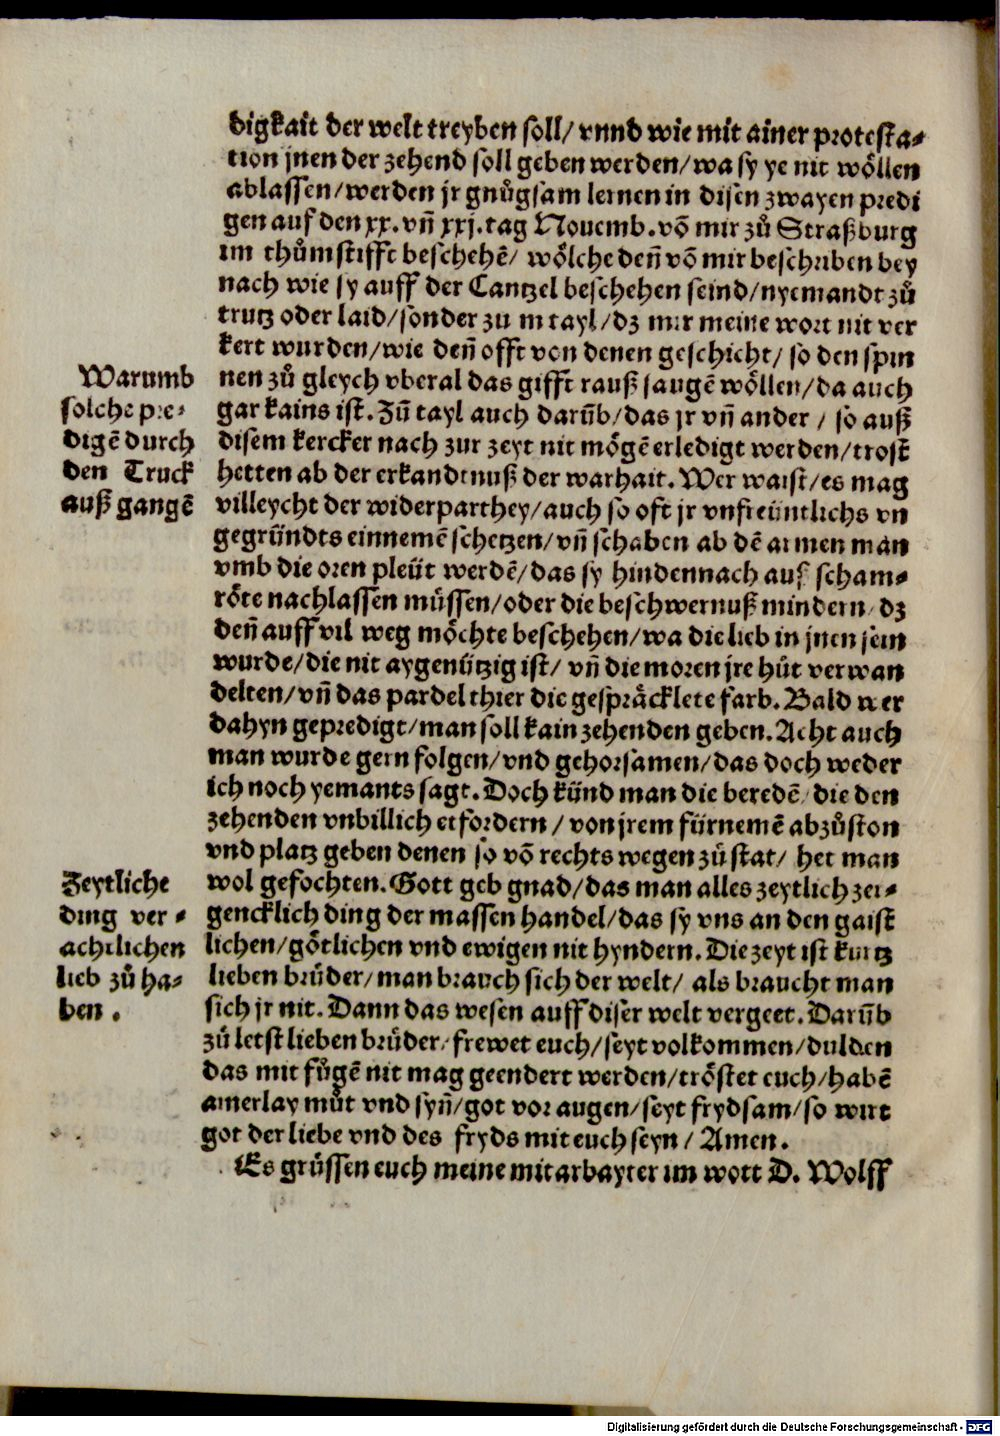 digkait der welt treyben soll/ vnnd wie mit ainer protesta⸗
tion jnen der zehend soll geben werden/ wa sy ye nit wöllen
ablassen/ werden jr gnůgsam lernen in disen zwayen predi
gen auf den xx. vñ xxj. tag Nouemb. võ mir zů Straßburg
im thůmstifft beschehẽ/ wölche deñ võ mir beschriben bey
nach wie sy auff der Cantzel beschehen seind/ nyemandt zů
trutz oder laid/ sonder zu m tayl/ dz mir meine wort nit ver
kert wurden/ wie deñ offt von denen geschicht/ so den spin
nen zů gleych vberal das gifft rauß saugẽ wöllen/ da auch
gar kains ist. Zũ tayl auch darũb/ das jr vñ ander / so auß
disem kercker nach zur zeyt nit mögẽ erledigt werden/ trost
hetten ab der erkandtnuß der warhait. Wer waist/ es mag
villeycht der widerparthey/ auch so oft jr vnfreüntlichs vn
gegründts einnemẽ schetzen/ vñ schaben ab dẽ armen man
vmb die oren pleüt werdẽ/ das sy hindennach auß scham⸗
röte nachlassen müssen/ oder die beschwernuß mindern/ dz
deñ auff vil weg möchte beschehen/ wa die lieb in jnen sein
wurde/ die nit aygenützig ist/ vñ die moren jre hüt verwan
delten/ vñ das pardel thier die gespräcklete farb. Bald wer
dahyn gepredigt/ man soll kain zehenden geben. Acht auch
man wurde gern folgen/ vnd gehorsamen/ das doch weder
ich noch yemants sagt. Doch künd man die beredẽ/ die den
zehenden vnbillich erfordern / von jrem fürnemẽ abzůston
vnd platz geben denen so võ rechts wegen zů stat/ het man
wol gefochten. Gott geb gnad/ das man alles zeytlich zer⸗
gencklich ding der massen handel/ das sy vns an den gaist
lichen/ götlichen vnd ewigen nit hyndern. Die zeyt ist kurtz
lieben brüder/ man brauch sich der welt/ als braucht man
sich jr nit. Dann das wesen auff diser welt vergeet. Darũb
zů letst lieben brüder/ frewet euch/ seyt volkommen/ dulden
das mit fůgẽ nit mag geendert werden/ tröstet euch/ habẽ
ainerlay můt vnd syñ/ got vor augen/ seyt frydsam/ so wirt
got der liebe vnd des fryds mit euch seyn / Amen.
Es grüssen euch meine mitarbayter im wort D. Wolff
Warumb
solche pre⸗
digẽ durch
den Truck
auß gangẽ
Zeytliche
ding ver⸗
achtlichen
lieb zů ha⸗
ben .
Digitalisierung gefördert durch die Deutsche Forschungsgemeinschaft - DFG